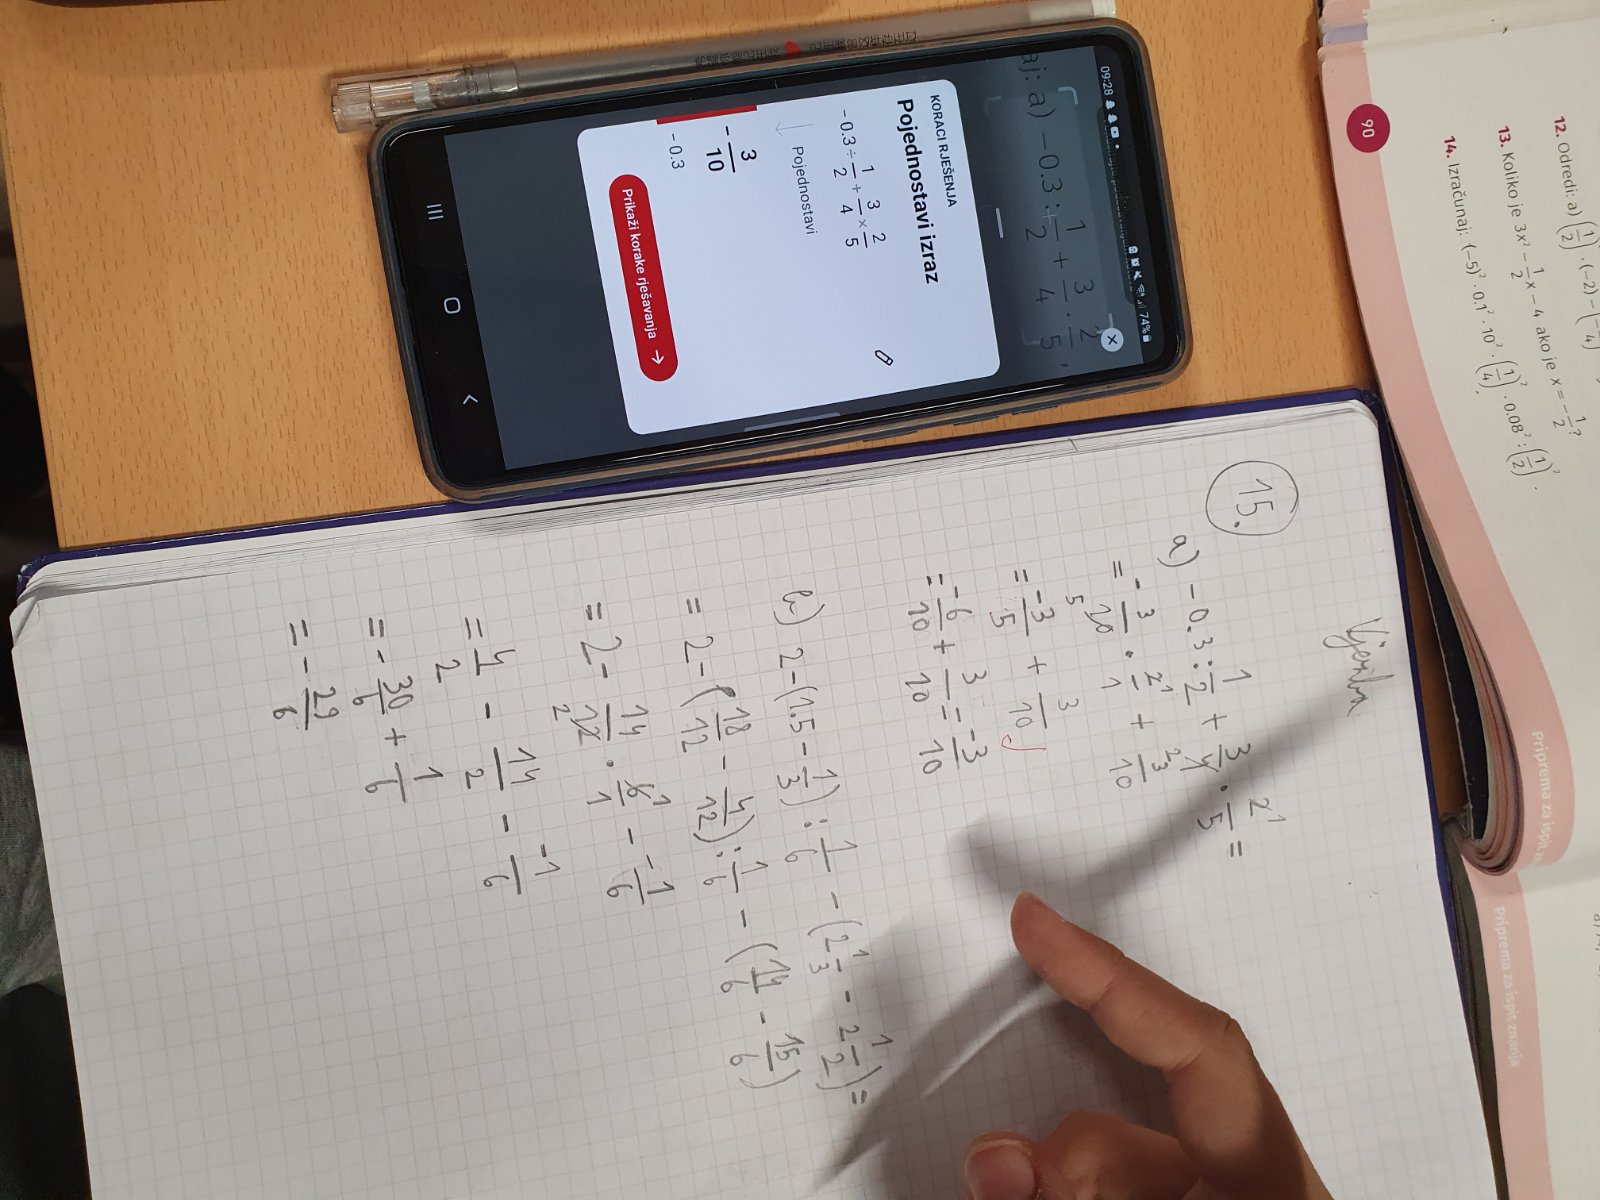 09:28 74%
aj: a) −0.3 : 1/2 + 3/4 · 2/5 ,
KORACI RJEŠENJA
Pojednostavi izraz
−0.3 ÷ 1/2 + 3/4 × 2/5
Pojednostavi
− 3/10
−0.3
Prikaži korake rješavanja →
90
12. Odredi: a) (1/2) · (−2) − (
13. Koliko je 3x² − 1/2 x − 4 ako je x = − 1/2 ?
14. Izračunaj: (−5)² · 0.1² · 10² · (1/4)² · 0.08² : (1/2)² .
Priprema za ispit
Priprema za ispit znanja
15.
a) −0.3 : 1/2 + 3/4 · 2/5 =
= − 3/10 · 2/1 + 3/10
= −3/5 + 3/10
= −6/10 + 3/10 = −3/10
b) 2 − (1.5 − 1/3) : 1/6 − (2 1/3 − 2 1/2) =
= 2 − (18/12 − 4/12) : 1/6 − (14/6 − 15/6)
= 2 − 14/12 · 6/1 − −1/6
= 4/2 − 14/2 − −1/6
= − 30/6 + 1/6
= − 29/6